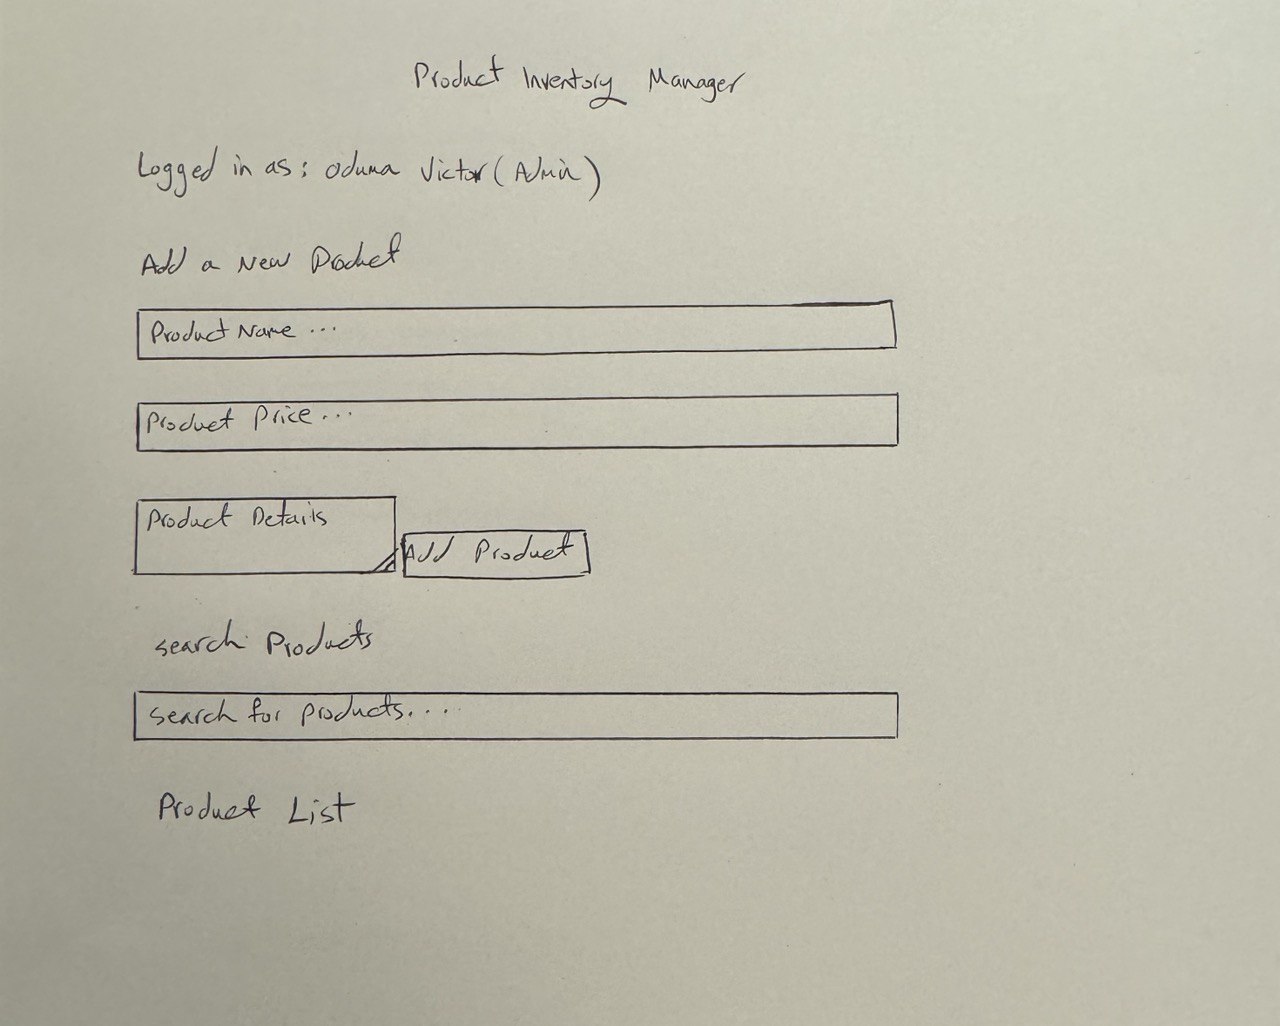 Product Inventory Manager
Logged in as: oduma Victor (Admin)
Add a New Product
Product Name ...
Product Price ...
Product Details
Add Product
search Products
search for products....
Product List